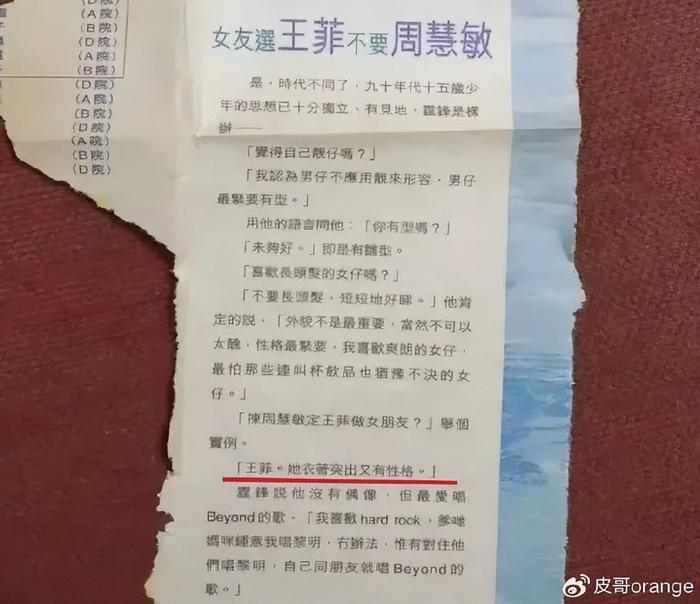 (A院)
(B院)
(D院)
(A院)
(B院)
(D院)
(A院)
(B院)
(D院)
(A院)
(B院)
(D院)
女友選王菲不要周慧敏
是,時代不同了,九十年代十五歲少
年的思想已十分獨立、有見地,霆鋒是樣
辦——
「覺得自己靚仔嗎?」
「我認為男仔不應用靚來形容,男仔
最緊要有型。」
用他的語言問他:「你有型嗎?」
「未夠好。」即是有雛型。
「喜歡長頭髮的女仔嗎?」
「不要長頭髮,短短地好睇。」他肯
定的説,「外貌不是最重要,當然不可以
太醜,性格最緊要,我喜歡爽朗的女仔,
最怕那些連叫杯飲品也猶豫不決的女
仔。」
「揀周慧敏定王菲做女朋友?」舉個
實例。
「王菲。她衣著突出又有性格。」
霆鋒説他沒有偶像,但最愛唱
Beyond的歌。「我喜歡hard rock,爹哋
媽咪鍾意我唱黎明,冇辦法,惟有對住他
們唱黎明,自己同朋友就唱Beyond的
歌。」
皮哥orange